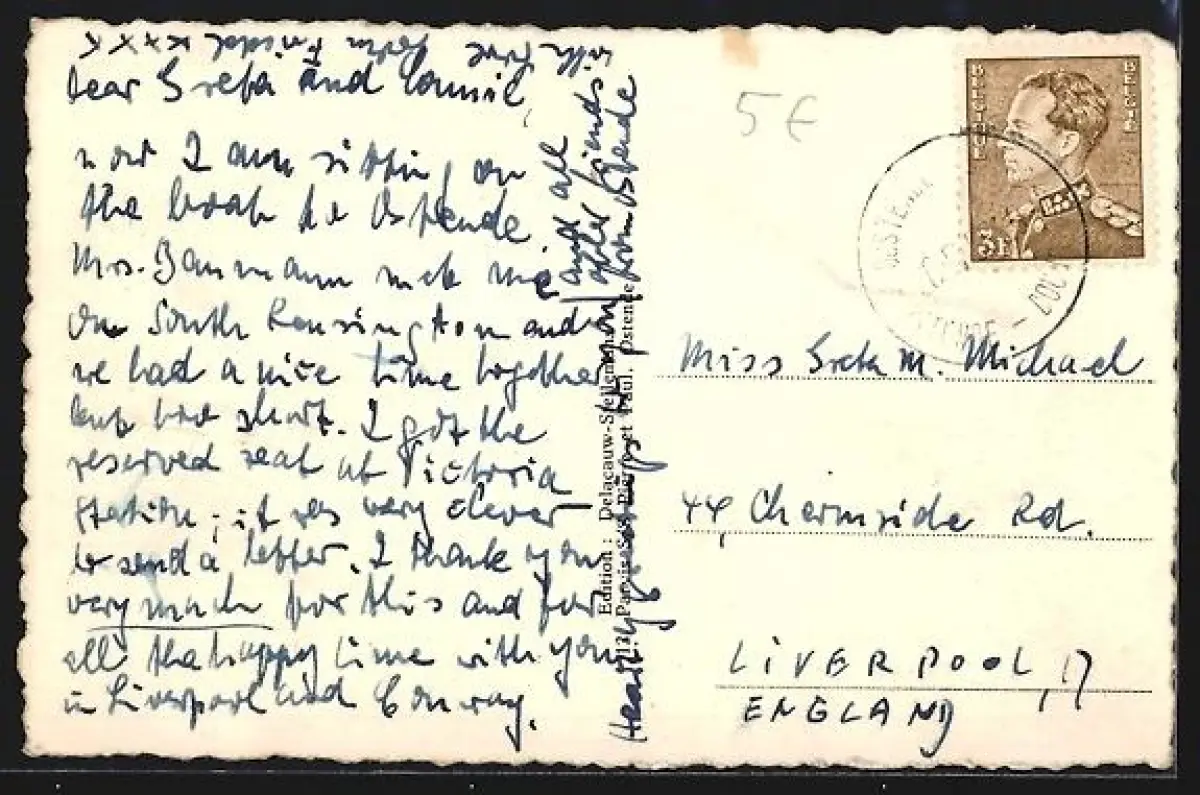 Dear Greta and Connie,
now I am sitting on
the boat to Ostende.
Mrs. Baumann met me
on South Kensington and
we had a nice time together
but too short. I got the
reserved seat at Victoria
Station; it was very clever
to send a letter. I thank you
very much for this and for
all the happy time with you
in Liverpool and Conway.
Hearty greetings from Ostende
and all
friends
with love
xxxx
Edition : Delacauw-Stellemans
Parvis SS. Pierre et Paul, Ostende
5€
BELGIQUE
BELGIE
3F
OOSTENDE
OOSTENDE
Miss Greta M. Michael
44 Chermside Rd.
LIVERPOOL, 17
ENGLAND